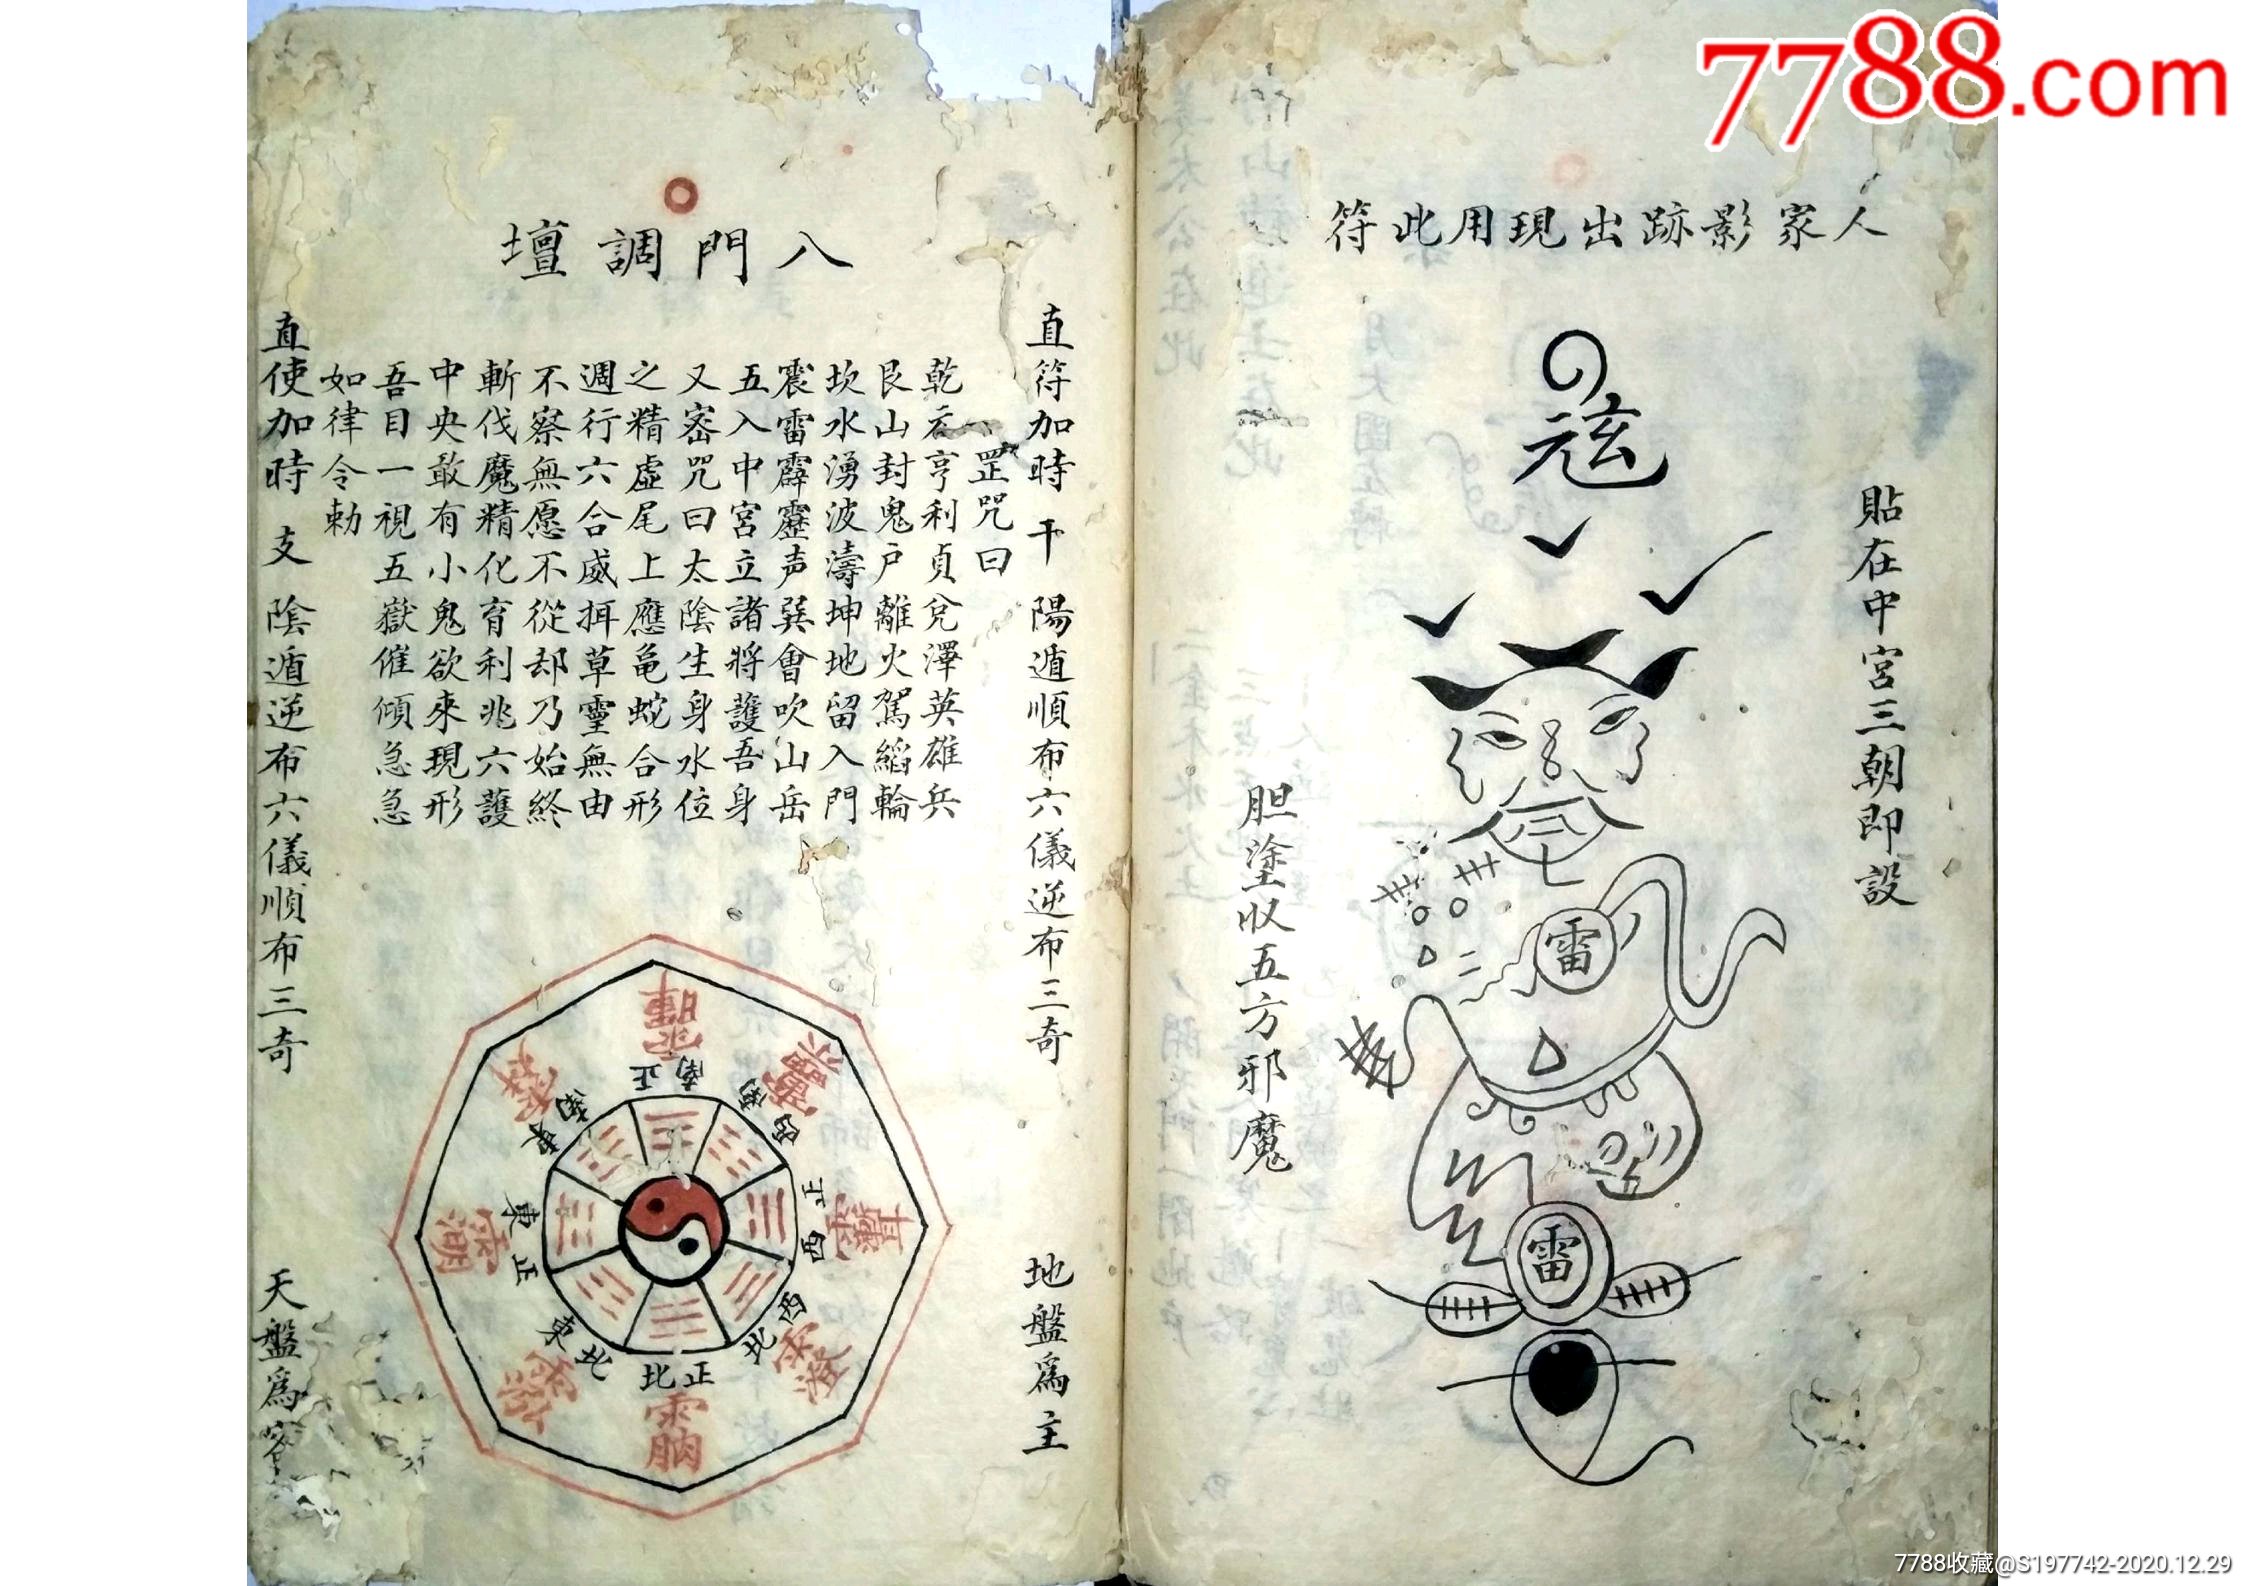 7788.com
人家影跡出現用此符
貼在中宮三朝即設
雷
雷
胆塗收五方邪魔
八門調壇
直符加時干陽遁順布六儀逆布三奇
地盤為主
罡咒曰
乾元亨利貞兌澤英雄兵
艮山封鬼户離火駕緇輪
坎水湧波濤坤地留入門
震雷霹靂声巽會吹山岳
五入中宮立諸將護吾身
又密咒曰太陰生身水位
之精虛尾上應亀蛇合形
週行六合威挕草靈無由
不察無愿不從却乃始終
斬伐魔精化育利兆六護
中央敢有小鬼欲來現形
吾目一視五嶽催傾急急
如律令勅
直使加時支陰遁逆布六儀順布三奇
天盤為客
正南
西南
正西
西北
正北
東北
正東
東南
7788收藏@S197742-2020.12.29